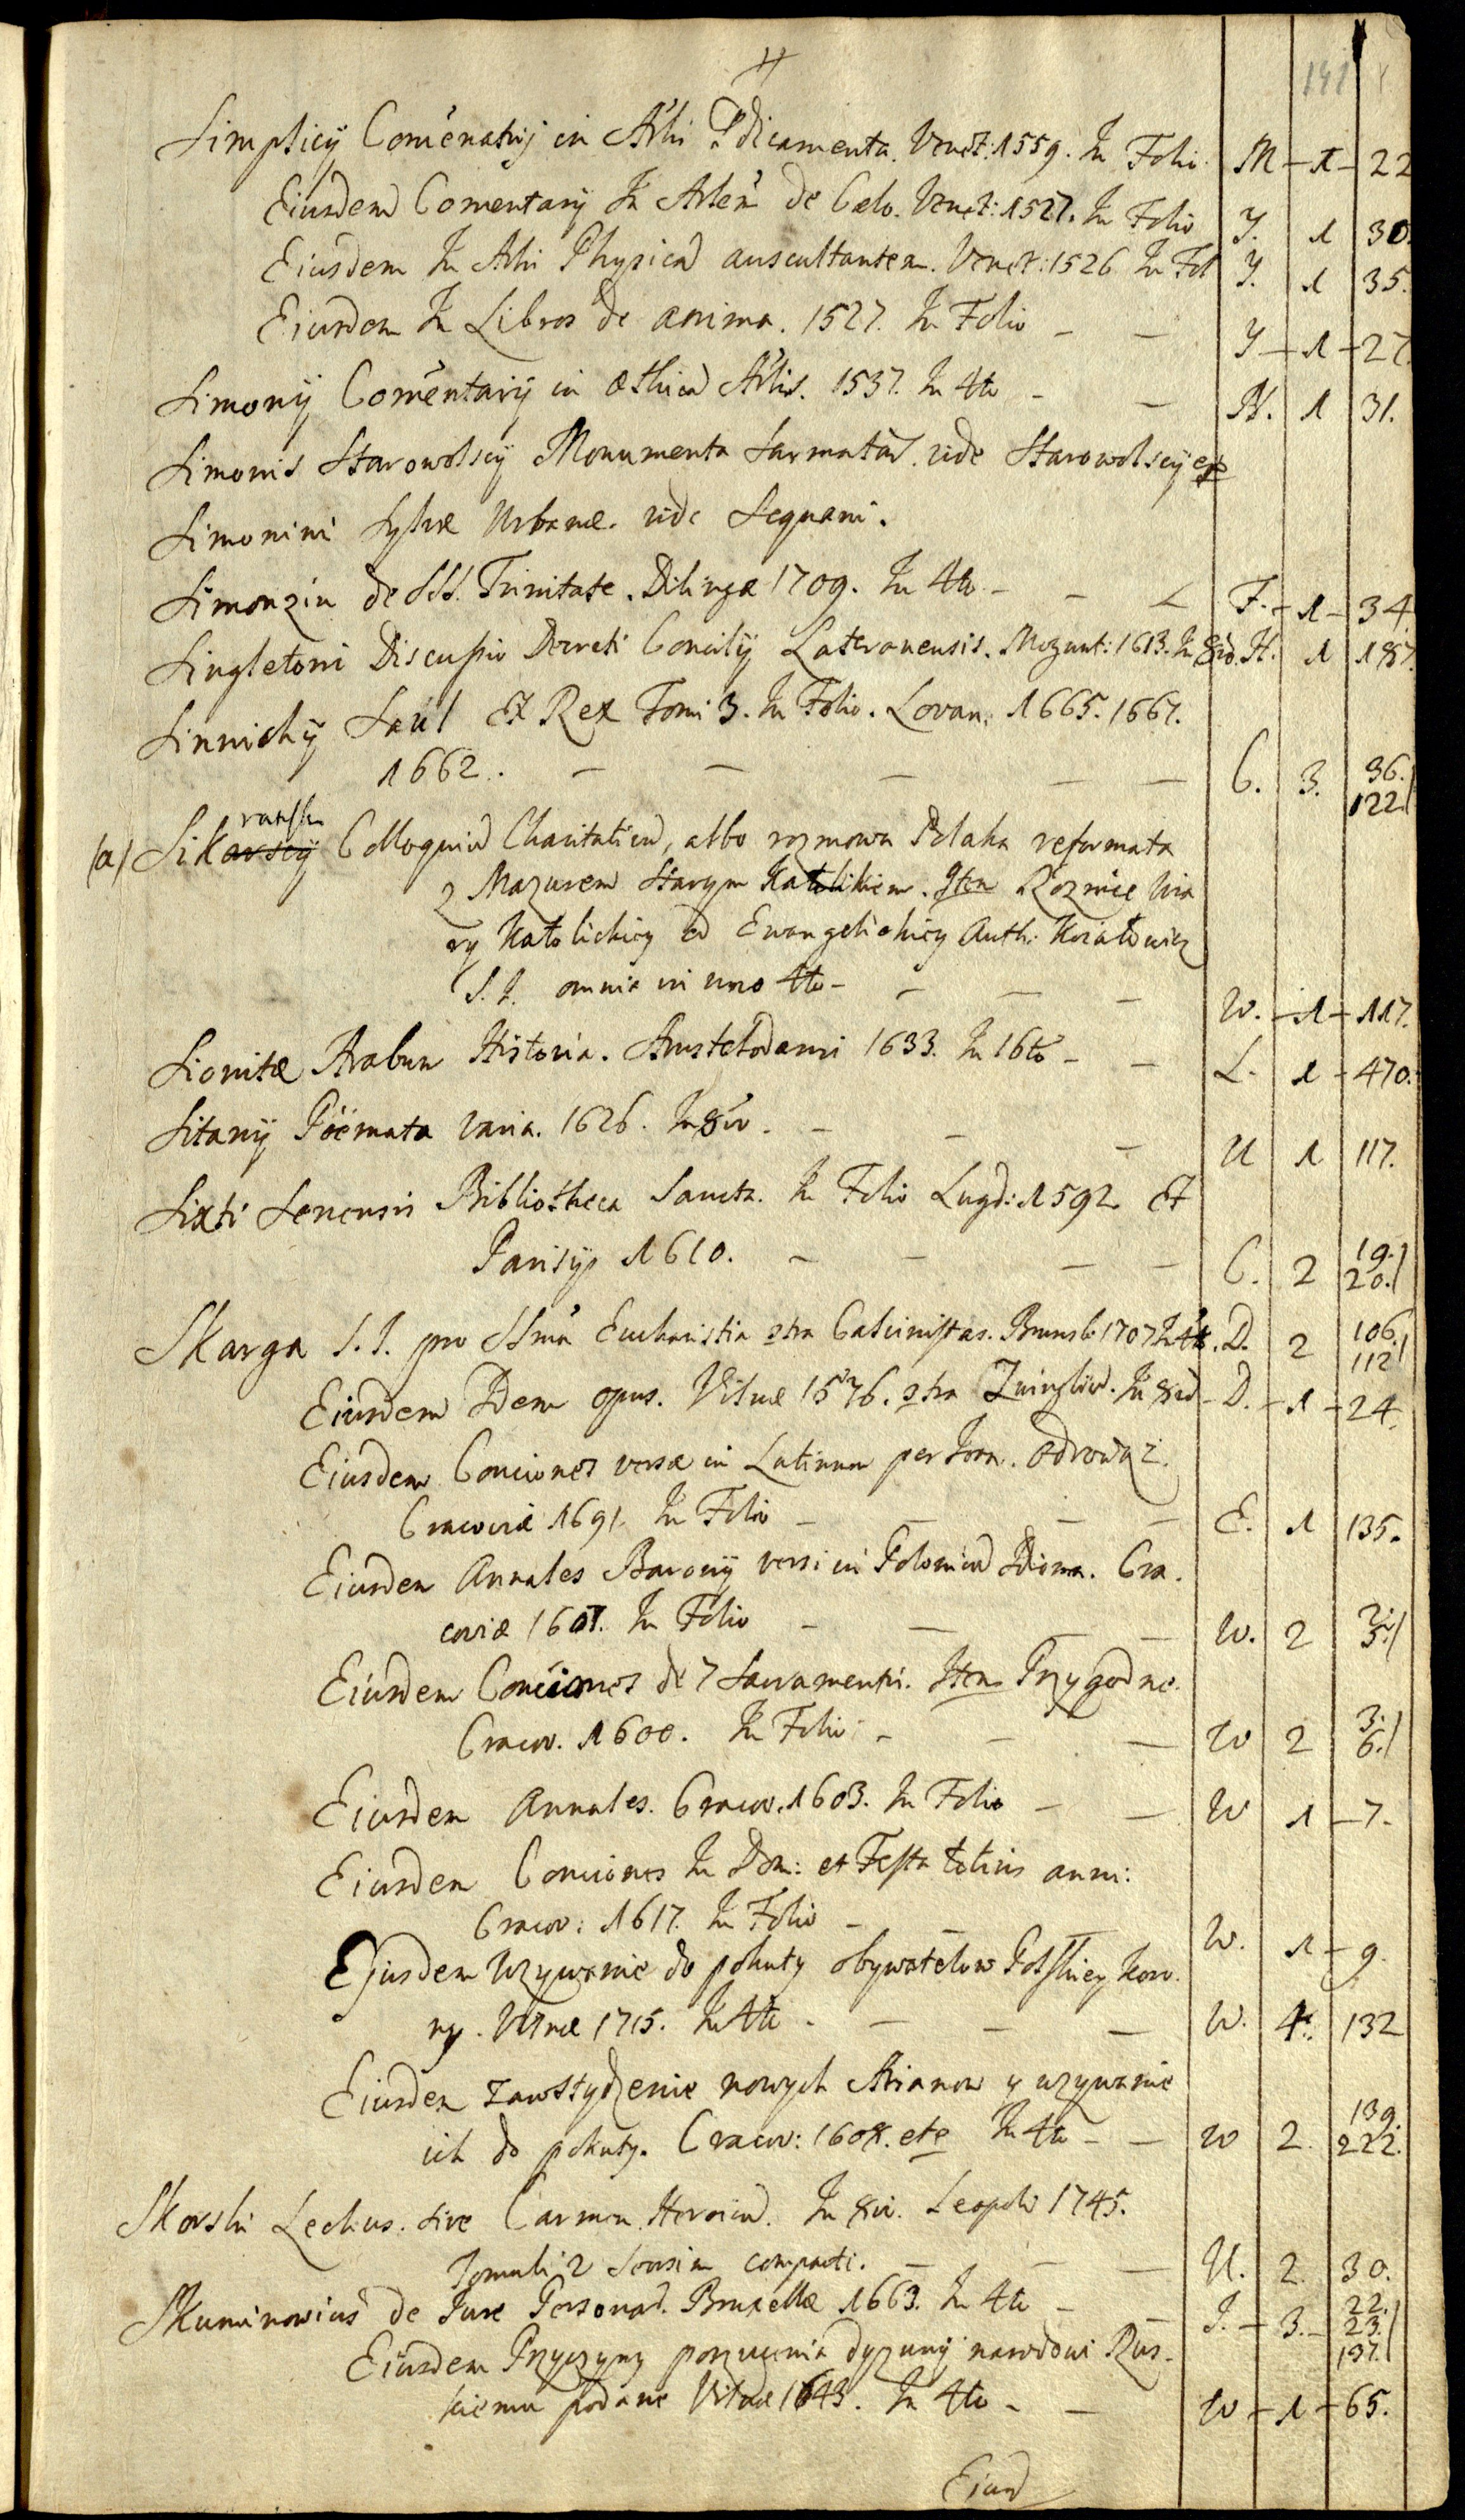 141
Simplicij Comēnatrij in Arli Pdicamenta. Venet: 1559. In Folio. M – 1 – 22
Eiusdem Comentarij In Arlem de Cælo. Venet: 1527. In Folio Y. 1 30.
Eiusdem In Arli Physicā auscultantem. Venet: 1526 In Fol Y. 1 35.
Eiusdem In Libros de anima. 1527. In Folio – – Y – 1 – 27.
Simonij Comēntarij in Æthica Arlis. 1537. In 4to – – N. 1 31.
Simonis Starowolscij Monumenta Sarmatar. vide Starowolscij
Simonini Sylvæ Urbanæ. vide Sequani.
Simonzin de SSS. Trinitate. Dilingæ 1709. In 4to – – F. – 1 – 34
Singletoni Discussio Decreti Concilij Lateranensis. Mogunt: 1613. In 8vo. H. 1 187.
Sinnichij Saul Ex Rex Tomi 3. In Folio. Lovan: 1665. 1667.
1662. – – – – – C. 3. 36. 122.
(a) Sikarscij ranski Colloquiū Charitatiuū, albo rozmowa Polaka reformata
z Mazurem starym Katolikiem. Item Rożnice wia
ry Katolickiey od Ewangelickiey Auth: Koiałowicz
S. J. omnia in uno 4to – – – – W. – 1 – 117.
Sionitæ Arabum Historia. Amstelodami 1633. In 16to – – L. 1 – 470.
Sitanij Poëmata varia. 1626. In 8vo. – – – U 1 117.
Sixti Senensis Bibliotheca Sancta. In Folio Lugd: 1592. Et
Parisijs 1610. – – – – C. 2 19. 20.
Skarga S. J. pro SSmā Eucharistia 9tra Calvinistas. Brunsb: 1707 In 4to. D. 2 106. 112
Eiusdem Idem opus. Vilnæ 1576. 9tra Zuingliū. In 8vo – D. – 1 – 24.
Eiusdem Conciones versæ in Latinum per Joan. Odrowąż.
Cracoviæ 1691. In Folio – – – – E. 1 135.
Eiusdem Annales Baronij versi in Poloniū Idioma. Cra.
coviæ 1607. In Folio – – – – W. 2 2. 5.
Eiusdem Conciones de 7 Sacramentis. Item Przygodne.
Cracov. 1600. In Folio – – – W 2 3. 6.
Eiusdem Annales. Cracov. 1603. In Folio – – W 1 – 7.
Eiusdem Conciones In Dom: et Festa totius anni:
Cracov: 1617. In Folio – – – W. 1 – 9.
Ejusdem Wzywanie do pokuty obywatelow Polskiey koro.
ny. Vilnæ 1715. In 4to. – – – W. 4. 132
Eiusdem zawstydzenie nowych Arianow y wzywanie
ich do pokuty. Cracov: 1608. etc In 4to – – W 2. 139. 222.
Skorski Lechus. sive Carmen Heroicū. In 8vo. Leopoli 1745.
Tomuli 2 seorsim compacti. – – – U. 2. 30.
Skuminowius de Jure Personar. Bruxellæ 1663. In 4to – – I. – 3. – 22. 23. 137.
Eiusdem Przyczyny porzucenia dyzunij narodowi Rus.
kiemu podane Vilnæ 1643. In 4to – – W – 1 – 65.
Eiusd